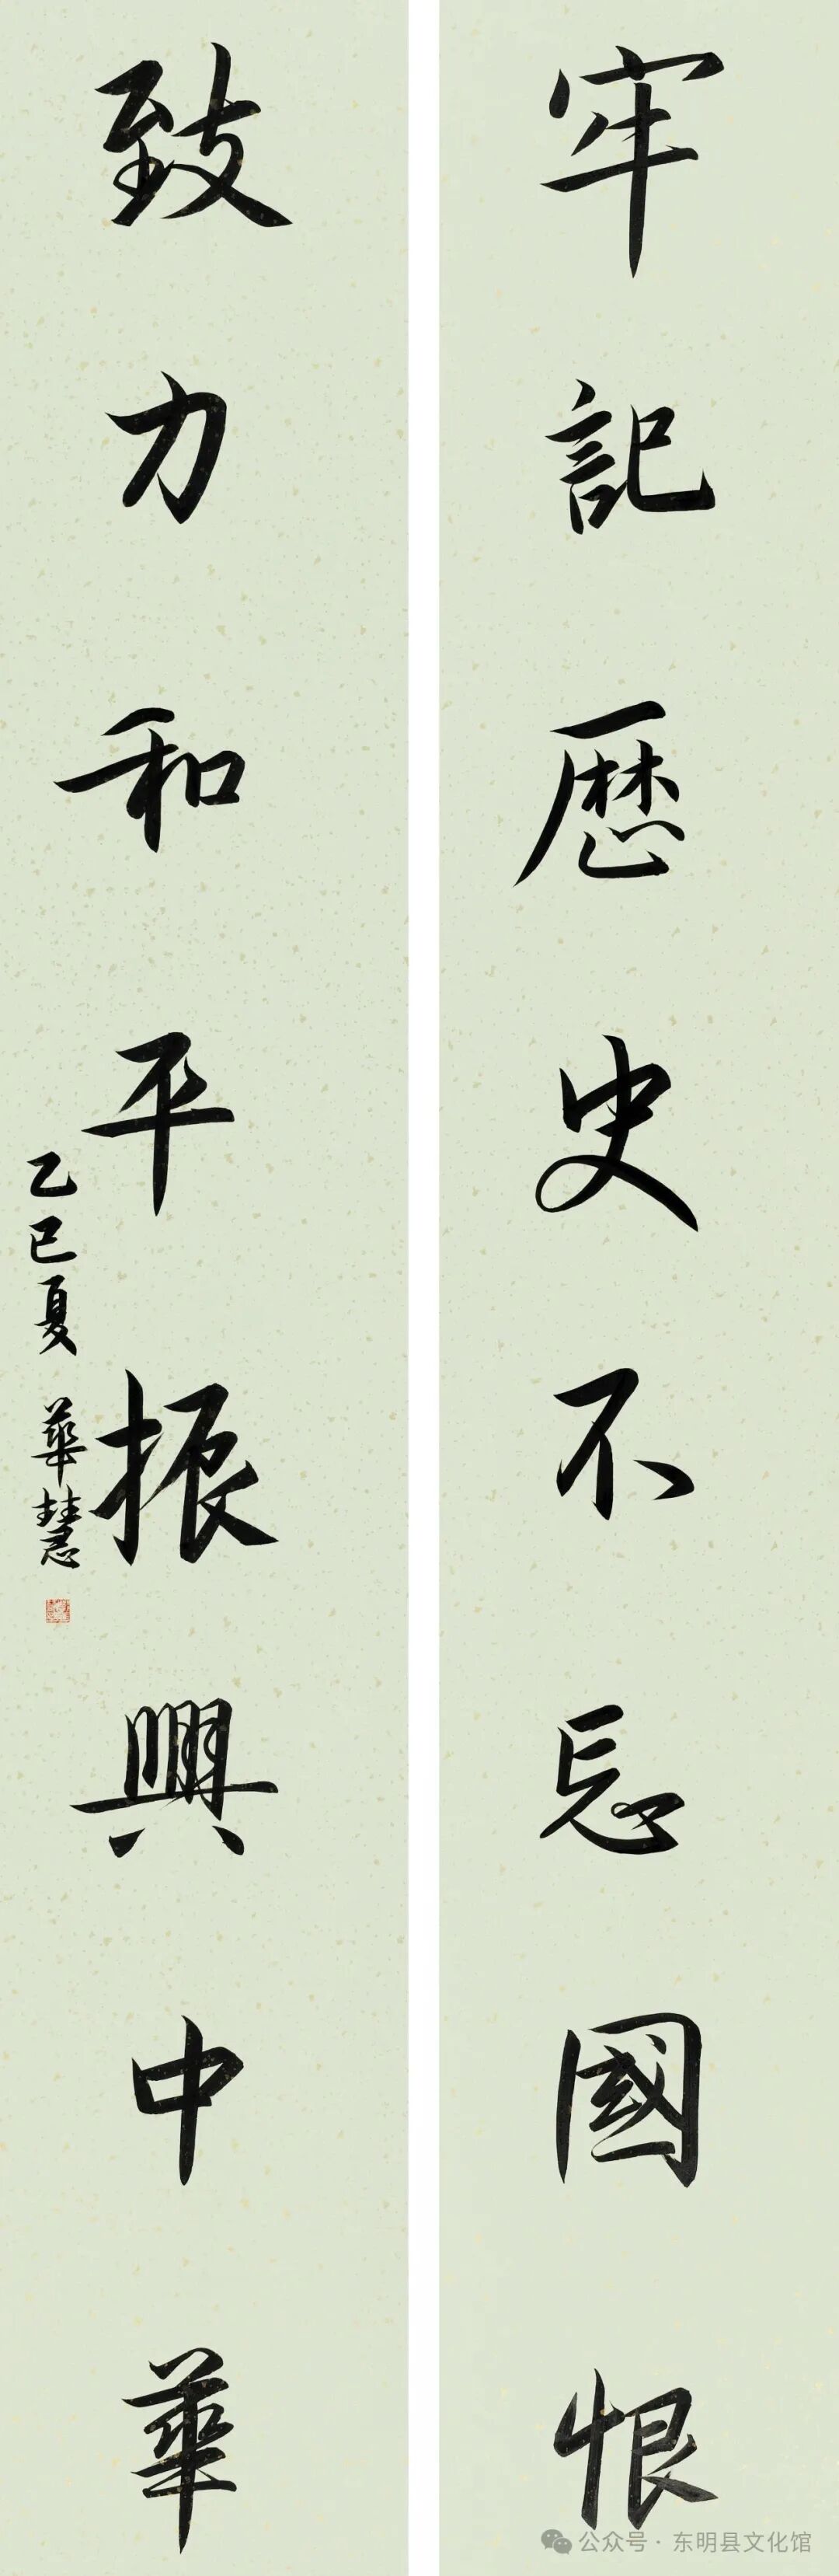 牢記歷史不忘國恨
致力和平振興中華
乙巳夏 華慧
公众号·东明县文化馆